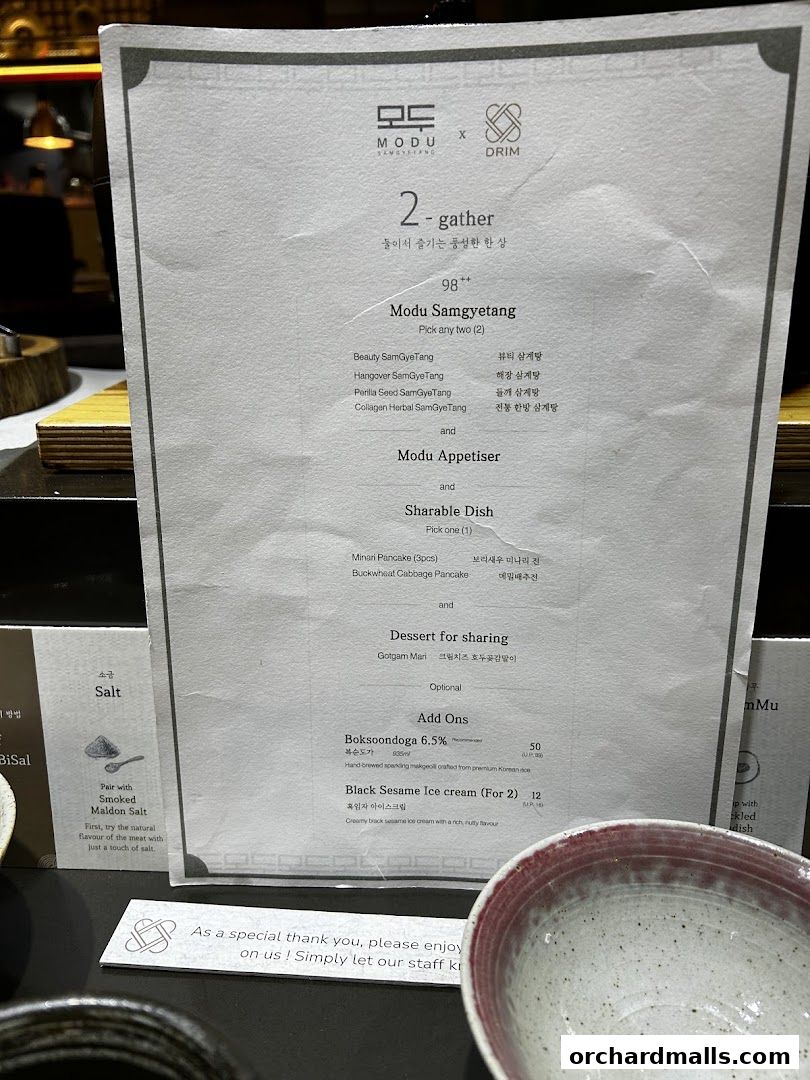 모두
MODU
SAMGYETANG
x
DRIM
2 - gather
둘이서 즐기는 풍성한 한 상
98++
Modu Samgyetang
Pick any two (2)
Beauty SamGyeTang 뷰티 삼계탕
Hangover SamGyeTang 해장 삼계탕
Perilla Seed SamGyeTang 들깨 삼계탕
Collagen Herbal SamGyeTang 전통 한방 삼계탕
and
Modu Appetiser
and
Sharable Dish
Pick one (1)
Minari Pancake (3pcs) 보리새우 미나리 전
Buckwheat Cabbage Pancake 메밀배추전
and
Dessert for sharing
Gotgam Mari 크림치즈 호두곶감말이
Optional
Add Ons
Boksoondoga 6.5% Recommended 50
복순도가 935ml
Hand-brewed sparkling makgeolli crafted from premium Korean rice
Black Sesame Ice cream (For 2) 12
흑임자 아이스크림
Creamy black sesame ice cream with a rich, nutty flavour
소금
Salt
Pair with
Smoked
Maldon Salt
First, try the natural
flavour of the meat with
just a touch of salt.
방법
BiSal
mMu
with
dish
As a special thank you, please enjoy
on us ! Simply let our staff
orchardmalls.com